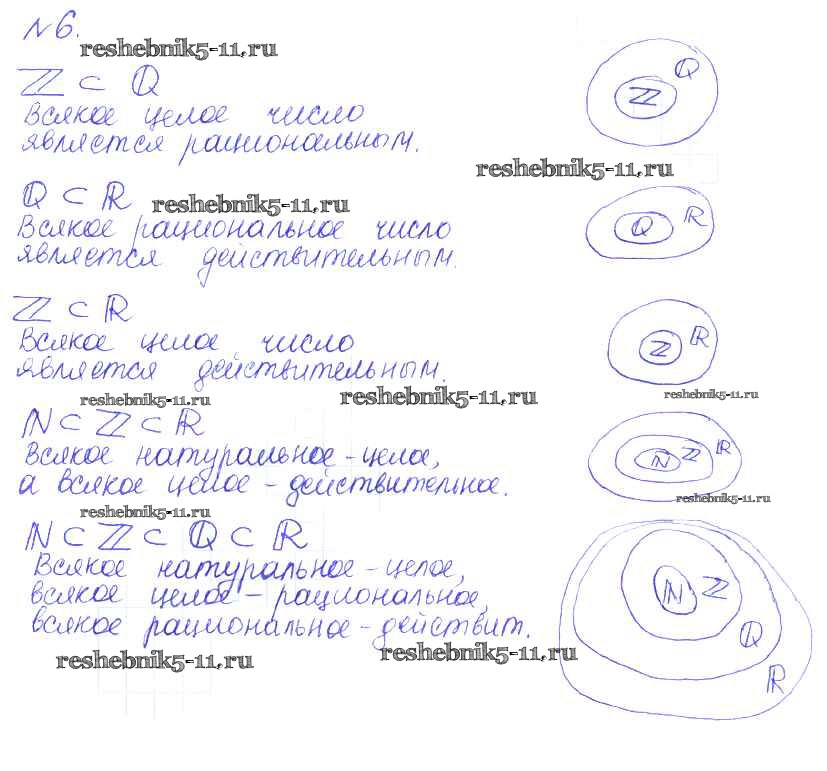 №6.
reshebnik5-11.ru
ℤ ⊂ ℚ
Всякое целое число
является рациональным.
ℚ
ℤ
reshebnik5-11.ru
ℚ ⊂ ℝ
reshebnik5-11.ru
Всякое рациональное число
является действительным.
ℚ ℝ
ℤ ⊂ ℝ
Всякое целое число
является действительным.
ℤ ℝ
reshebnik5-11.ru
reshebnik5-11.ru
reshebnik5-11.ru
ℕ ⊂ ℤ ⊂ ℝ
Всякое натуральное - целое,
а всякое целое - действительное.
ℕ ℤ ℝ
reshebnik5-11.ru
reshebnik5-11.ru
ℕ ⊂ ℤ ⊂ ℚ ⊂ ℝ
Всякое натуральное - целое,
всякое целое - рациональное,
всякое рациональное - действит.
ℕ ℤ
ℚ
ℝ
reshebnik5-11.ru
reshebnik5-11.ru